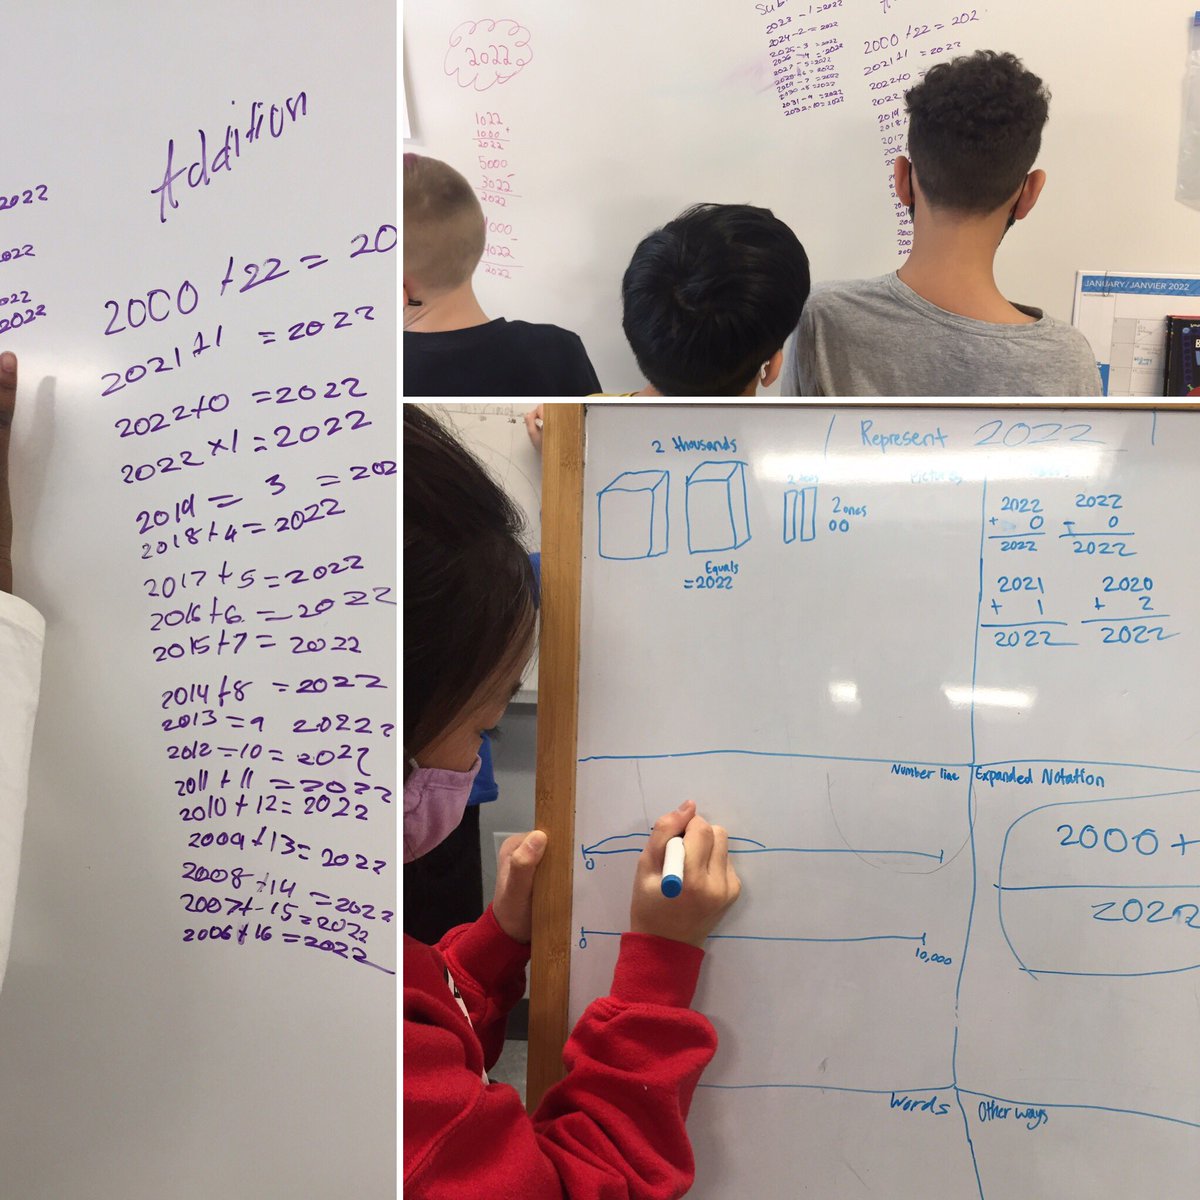 2022
2022
2022
2022
Addition
2000 + 22 = 20
2021 + 1 = 2022
2022 + 0 = 2022
2022 x 1 = 2022
2019 = 3 = 202
2018 + 4 = 2022
2017 + 5 = 2022
2016 + 6 = 2022
2015 + 7 = 2022
2014 + 8 = 2022
2013 = 9 2022
2012 = 10 = 2022
2011 + 11 = 2022
2010 + 12 = 2022
2009 + 13 = 2022
2008 + 14 = 2022
2007 + 15 = 2022
2006 + 16 = 2022
2022
1022
1000 +
2022
5000
3022 -
2022
4022
2022
2023 - 1 = 2022
2024 - 2 = 2022
2025 - 3 = 2022
2026 - 4 = 2022
2027 - 5 = 2022
2029 - 7 = 2022
2030 - 8 = 2022
2031 - 9 = 2022
2032 - 10 = 2022
2000 + 22 = 202
2021 + 1 = 2022
2022 + 0
2022
2019
2018
2017
JANUARY / JANVIER 2022
Represent 2022
2 thousands
2 tens
2 ones
Equals
= 2022
Pictures
2022
+ 0
2022
2022
- 0
2022
2021
+ 1
2022
2020
+ 2
2022
Number line
0
0 10,000
Expanded Notation
2000 +
2022
Words
Other ways